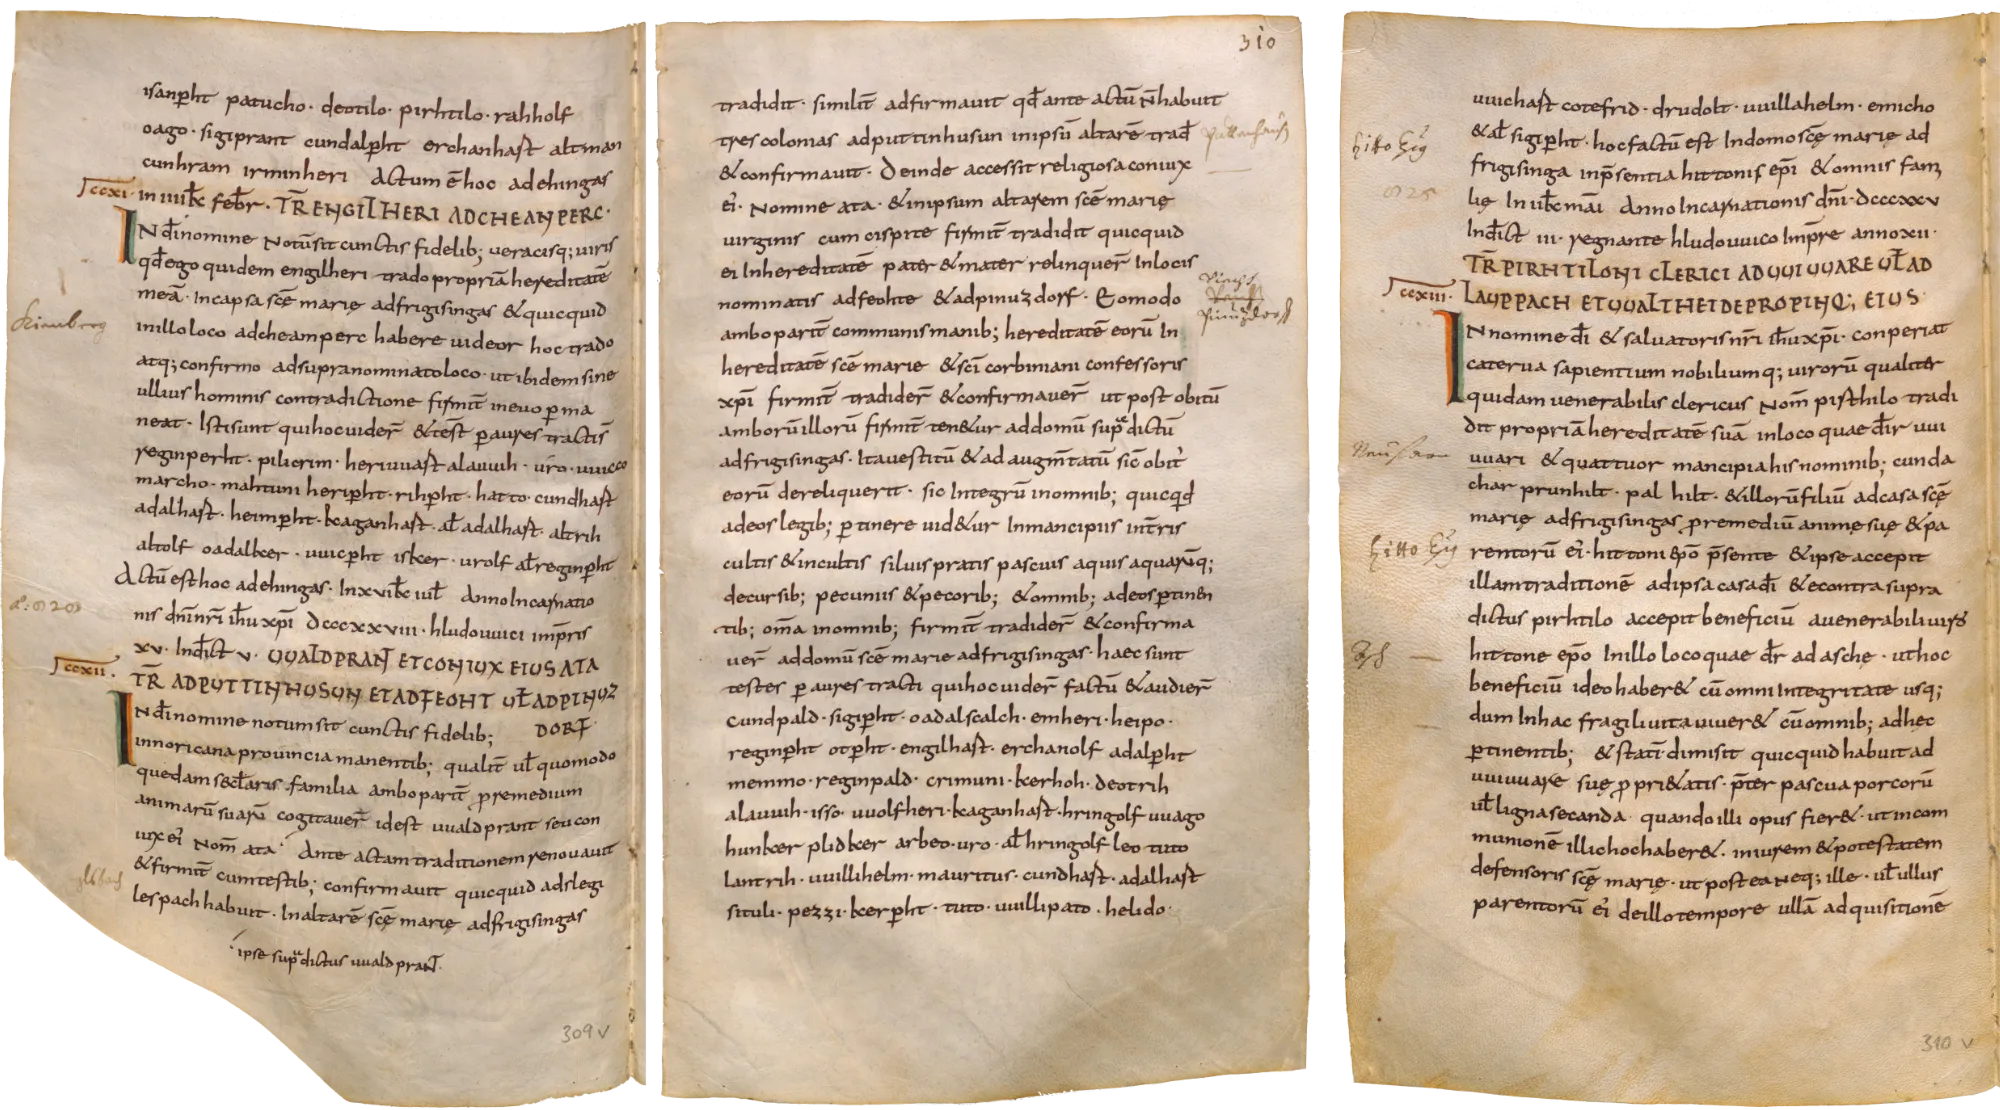 isanp̄ht patucho · deotilo · pirhtilo · rahholf
oago · sigiprant cundalp̄ht erchanhast altman
cunhram irminheri Actum ē hoc adehingas
ccxi · in iiii kƚ febr̄ · TR̄ ENGILHERI ADCHEANPERC ·
IN dī nomine Notūsit cunctis fidelib; ueracisq; uiris
qd̄ ego quidem engilheri trado propriā hereditatē
meā · incapsa scē marię adfrigisingas & quicquid
kirnberg
inillo loco adcheamperc habere uideor hoc trado
atq; confirmo adsupranominatoloco · ut ibidem sine
ullius hominis contradictione firmit̄ ineuo p̄ma
neat · Istisunt quihocuider̄ & test p̄aures tractis̄
reginperht · piligrim · heriuuast alauuih · uro · uuicco
marcho · mahtuni herip̄ht · rihp̄ht · hatto · cundhast
adalhast · heimp̄ht · kaganhast · aƚ adalhast · altrih
altolf oadalker · uuicp̄ht isker · urolf aƚ reginp̄ht
Actū est hoc adehingas · Inxui kƚ iuƚ Anno Incarnatio
nis dn̄i nr̄i ihū xp̄i Dcccxxuiii · hludouuici imp̄ris
xv · Ind̄ict v · UUALDPRAN̄T ET CONIUX EIUS ATA
ccxii · TR̄ ADPUTTINHUSUN ET ADFEOHT UƚADPINUZ
DORF ·
IN dī nomine notumsit cunctis fidelib;
innoricana prouincia manentib; qualit̄ uƚ quomodo
quedam sęcƚaris familia ambo parit̄ p̄remedium
animarū suarū cogitauer̄ idest uualdprant seu con
iux ei' Nom̄ ata · Ante actam traditionem renouauit
& firmit̄ cumtestib; confirmauit quicquid adslegi
lespach habuit · Inaltarē scē marię adfrigisingas
ipse sup̄dictus uualdpran̄t ·
309 v
310
tradidit · similit̄ adfirmauit qd̄ ante actū N̄ habuit
tres colonias adputtinhusun inipsū altarē trad̄
& confirmauit · Deinde accessit religiosa coniux
ei' · Nomine ata · & inipsum altarem scē marię
uirginis cum eisp̄ite firmit̄ tradidit quicquid
ei Inhereditatē pater & mater relinquer̄ Inlocis
nominatis adfeohte & adpinuzdorf · Eomodo
ambo parit̄ communis manib; hereditatē eorū In
hereditatē scē marie & scī corbiniani confessoris
xp̄i firmit̄ tradider̄ & confirmauer̄ ut post obitū
amborū illorū firmit̄ ten&ur addomū sup̄dictū
adfrigisingas · Itauestitū & ad augm̄tatū sic̄ obit'
eorū dereliquerit · sic Integrū inomnib; quicqd̄
adeos legib; p̄tinere uid&ur Inmancipiis int̄ris
cultis & incultis siluis pratis pascuis aquis aquarūq;
decursib; pecuniis & pecorib; & omnib; adeos p̄tinen
tib; om̄a inomnib; firmit̄ tradider̄ & confirma
uer̄ addomū scē marie adfrigisingas · haec sunt
testes p̄ aures tracti quihocuider̄ factū & audier̄
cundpald · sigip̄ht · oadalscalch · emheri · heipo ·
reginp̄ht otp̄ht · engilhast · erchanolf adalp̄ht
memmo · reginpald · crimuni · kerhoh · deotrih
alauuih · isso · uuolfheri · kaganhast · hringolf uuago
hunker plidker arbeo · uro · aƚ hringolf leo tuto
lantrih · uuillihelm · mauritus · cundhast · adalhast
situli · pezzi · kerp̄ht · tuto · uuillipato · helido ·
uuichast cotefrid · drudolt · uuillahelm · emicho
& aƚ sigip̄ht · hoc factū est Indomo scę marię ad
frigisinga inp̄sentia hittonis ep̄i & omnis fam
lię In ui kƚ mai Anno Incarnationis dn̄i · dcccxxv
Ind̄ict iii · regnante hludouuico Imp̄re anno xii ·
TR̄ PIRHTILONI CLERICI ADUUIUUARE UƚAD
ccxiii · LAUPPACH ET UUALTHEIDEPROPINQ; EIUS
IN nomine dī & saluatoris nr̄i ihū xp̄i · conperiat
caterua sapientium nobiliumq; uirorū qualiter
quidam uenerabilis clericus Nom̄ pirhtilo tradi
dit propriā hereditatē suā inloco quae dīr uui
uuari & quattuor mancipia his nominib; cunda
char prunhilt · palhilt · & illorū filiū adcasa scę
marię adfrigisingas p̄remediū animę suę & pa
rentorū ei' · hittoni ep̄o p̄sente & ipse accepit
illam traditionē adipsa casa dī & econtra supra
dictus pirhtilo accepit beneficiū auenerabili uiro
hittone ep̄o Inillo loco quae dr̄ adasche · ut hoc
beneficiū ideo haber& cū omni Integritate usq;
dum Inhac fragili uita uiuer& cū omnib; adhęc
p̄tinentib; & statī dimisit quicquid habuit ad
uuiuuare suę proprietatis · p̄ter pascua porcorū
uƚ ligna secanda quando illi opus fier& · ut incom
munionē illic hoc haber& · iniurem & potestatem
defensoris scę marię · ut postea Neq; ille · uƚ ullus
parentorū ei' deillo tempore ullā adquisitionē
310 v